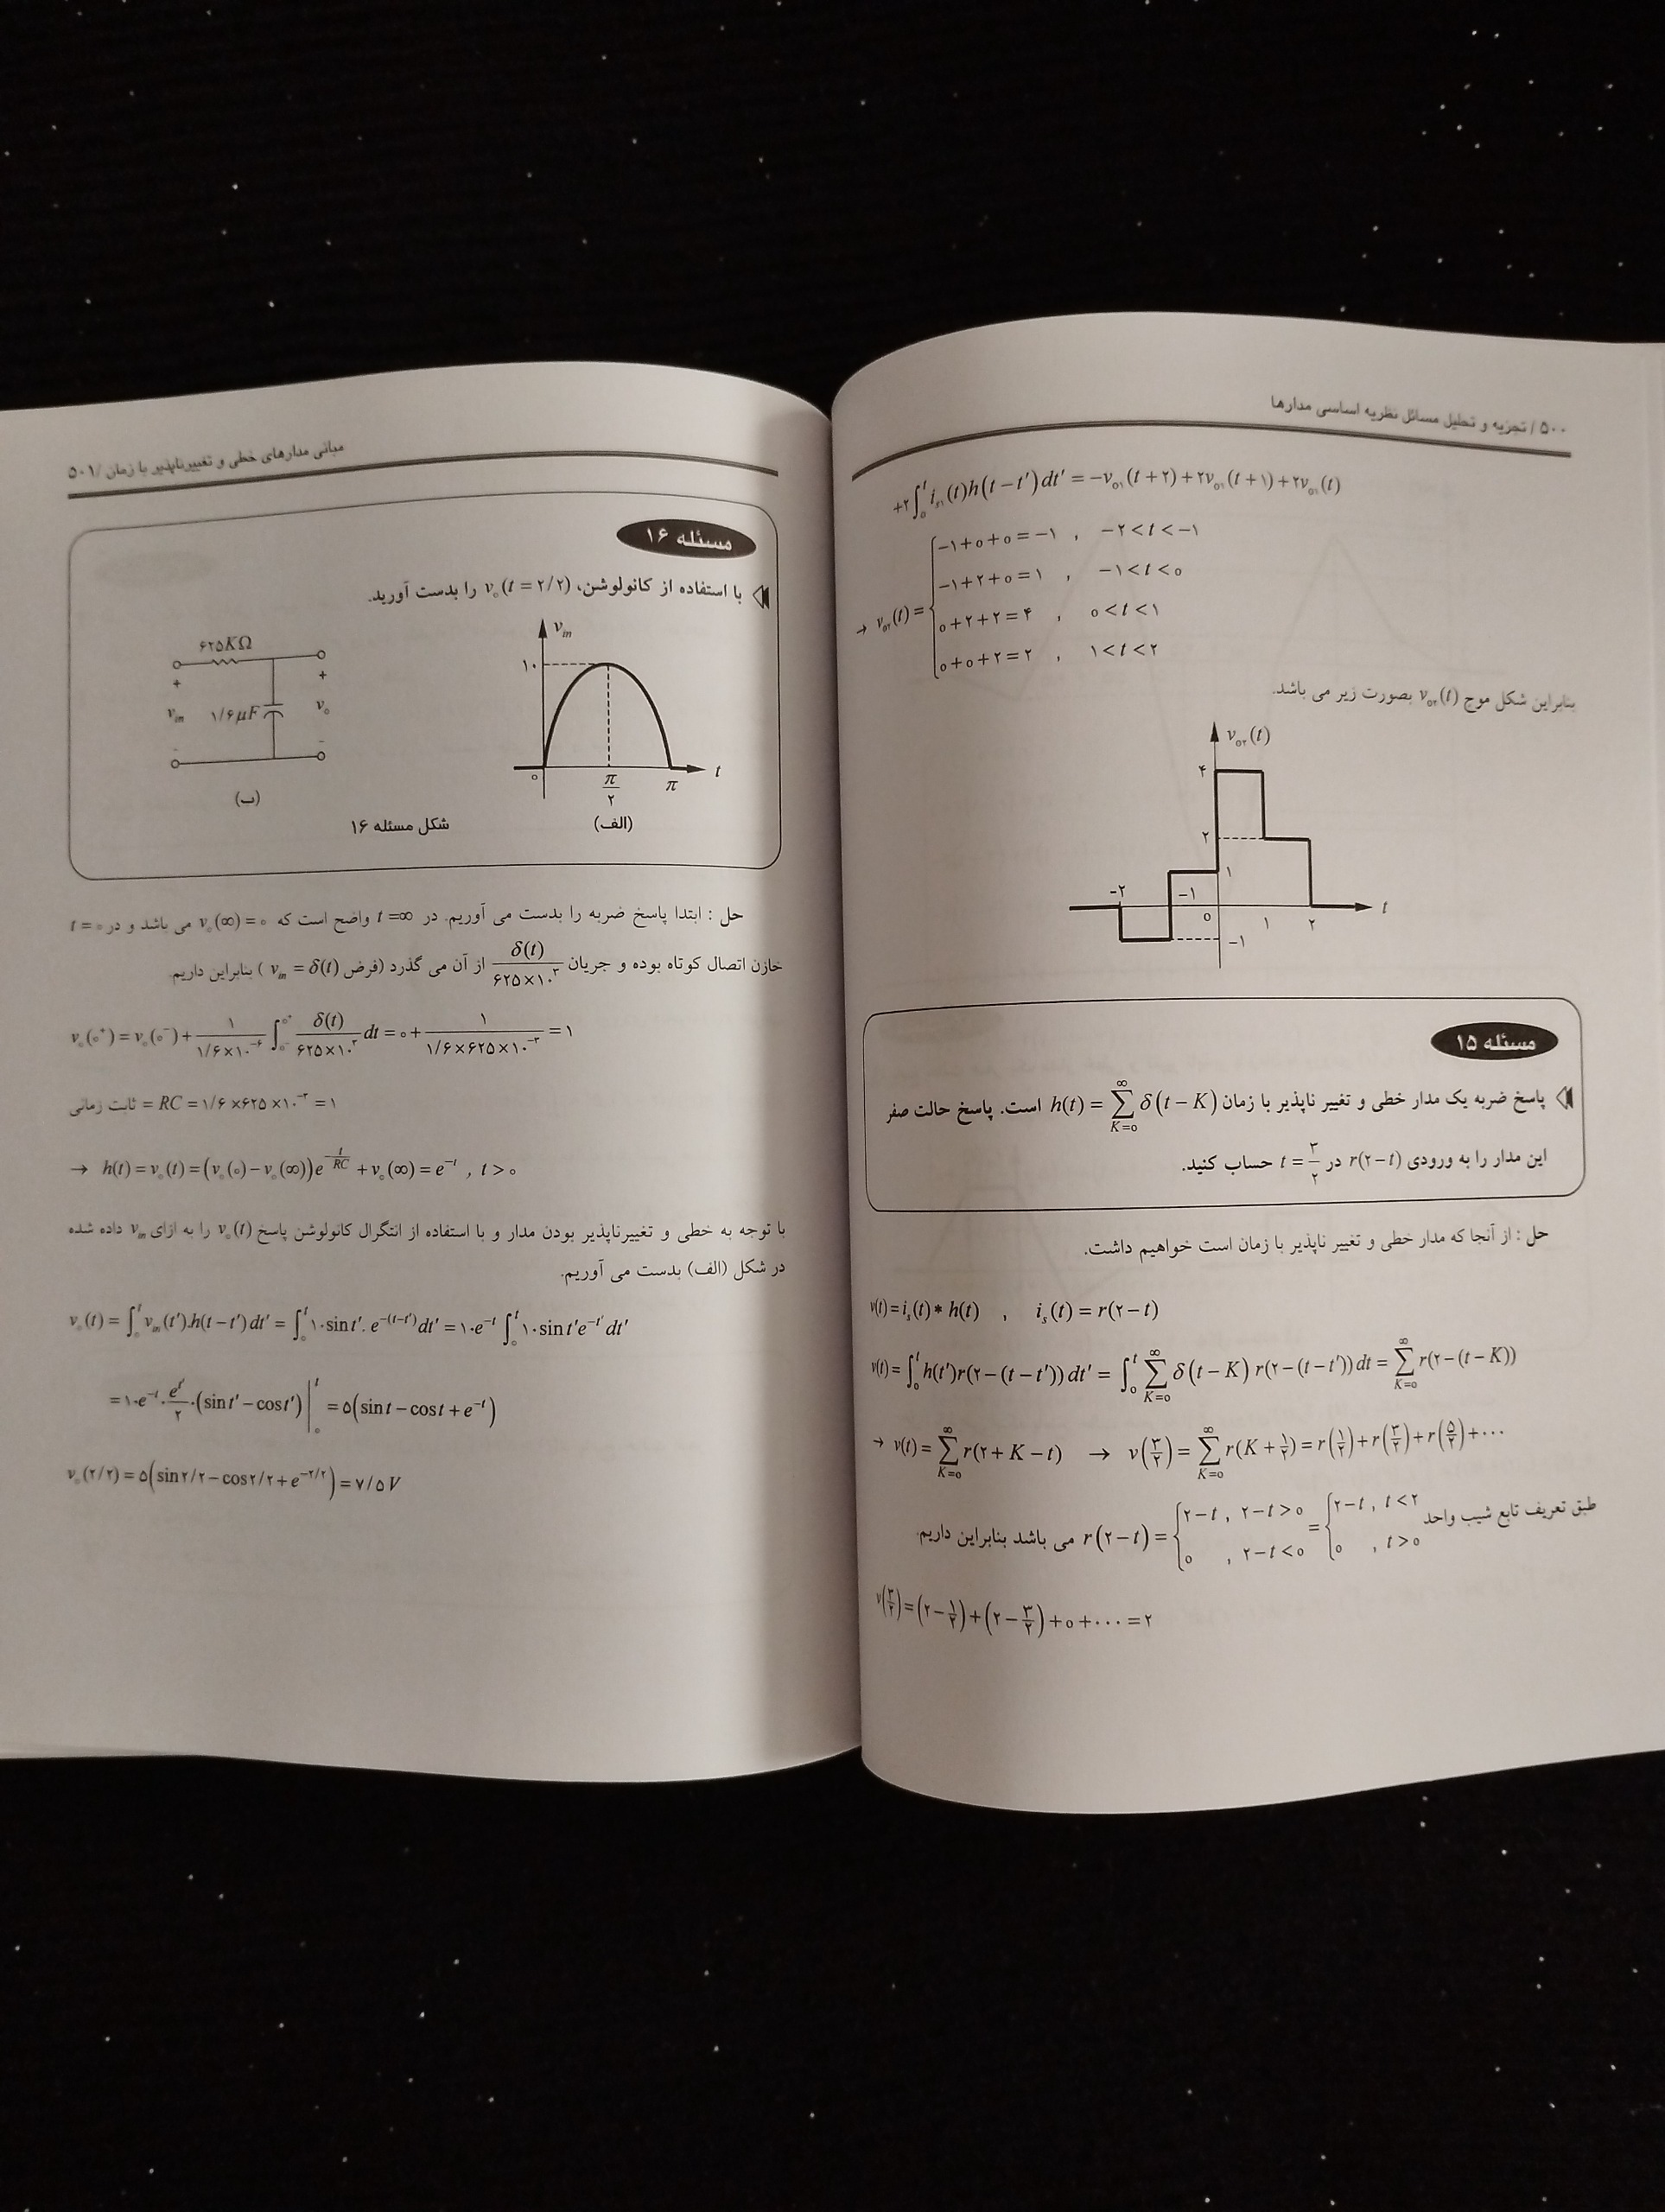 ۵۰۰ / تجزیه و تحلیل مسائل نظریه اساسی مدارها
+۲∫₀ᵗ iₛ₁(t)h(t−t′)dt′ = −v₀₁(t+۲)+۲v₀₁(t+۱)+۲v₀₁(t)
→ v₀₂(t) = {
−۱+۰+۰=−۱ , −۲<t<−۱
−۱+۲+۰=۱ , −۱<t<۰
۰+۲+۲=۴ , ۰<t<۱
۰+۰+۲=۲ , ۱<t<۲
بنابراین شکل موج v₀₂(t) بصورت زیر می باشد.
v₀₂(t)
۴
۲
۱
−۲ −۱ ۰ ۱ ۲ t
−۱
مسئله ۱۵
پاسخ ضربه یک مدار خطی و تغییر ناپذیر با زمان h(t) = ∑_{K=۰}^{∞} δ(t−K) است. پاسخ حالت صفر
این مدار را به ورودی r(۲−t) در t = ۳/۲ حساب کنید.
حل : از آنجا که مدار خطی و تغییر ناپذیر با زمان است خواهیم داشت.
v(t) = iₛ(t) * h(t) , iₛ(t) = r(۲−t)
v(t) = ∫₀ᵗ h(t′)r(۲−(t−t′))dt′ = ∫₀ᵗ ∑_{K=۰}^{∞} δ(t−K) r(۲−(t−t′))dt = ∑_{K=۰}^{∞} r(۲−(t−K))
→ v(t) = ∑_{K=۰}^{∞} r(۲+K−t) → v(۳/۲) = ∑_{K=۰}^{∞} r(K+۱/۲) = r(۱/۲)+r(۳/۲)+r(۵/۲)+···
طبق تعریف تابع شیب واحد r(۲−t) = {۲−t , ۲−t>۰ ; ۰ , ۲−t<۰ = {۲−t , t<۲ ; ۰ , t>۰ می باشد بنابراین داریم.
v(۳/۲) = (۲−۱/۲)+(۲−۳/۲)+۰+··· = ۲
مبانی مدارهای خطی و تغییرناپذیر با زمان / ۵۰۱
مسئله ۱۶
با استفاده از کانولوشن، v₀(t = ۲/۲) را بدست آورید.
v_in
۱۰
۰ π/۲ π t
(الف)
۶۲۵KΩ
+ +
v_in ۱/۶μF v₀
- -
(ب)
شکل مسئله ۱۶
حل : ابتدا پاسخ ضربه را بدست می آوریم. در t=∞ واضح است که v₀(∞)=۰ می باشد و در t=۰
خازن اتصال کوتاه بوده و جریان δ(t)/(۶۲۵×۱۰^۳) از آن می گذرد (فرض v_in = δ(t) ) بنابراین داریم.
v₀(۰⁺) = v₀(۰⁻) + ۱/(۱/۶×۱۰^−۶) ∫_{۰⁻}^{۰⁺} δ(t)/(۶۲۵×۱۰^۳) dt = ۰ + ۱/(۱/۶×۶۲۵×۱۰^−۳) = ۱
ثابت زمانی = RC = ۱/۶×۶۲۵×۱۰^−۳ = ۱
→ h(t) = v₀(t) = (v₀(۰)−v₀(∞))e^{−t/RC} + v₀(∞) = e^{−t} , t>۰
با توجه به خطی و تغییرناپذیر بودن مدار و با استفاده از انتگرال کانولوشن پاسخ v₀(t) را به ازای v_in داده شده
در شکل (الف) بدست می آوریم.
v₀(t) = ∫₀ᵗ v_in(t′).h(t−t′)dt′ = ∫₀ᵗ ۱۰sint′. e^{−(t−t′)}dt′ = ۱۰e^{−t} ∫₀ᵗ ۱۰sint′e^{−t′}dt′
= ۱۰e^{−t}·(e^{t′}/۲)·(sint′−cost′)|₀ᵗ = ۵(sint−cost+e^{−t})
v₀(۲/۲) = ۵(sin۲/۲−cos۲/۲+e^{−۲/۲}) = ۷/۵ V